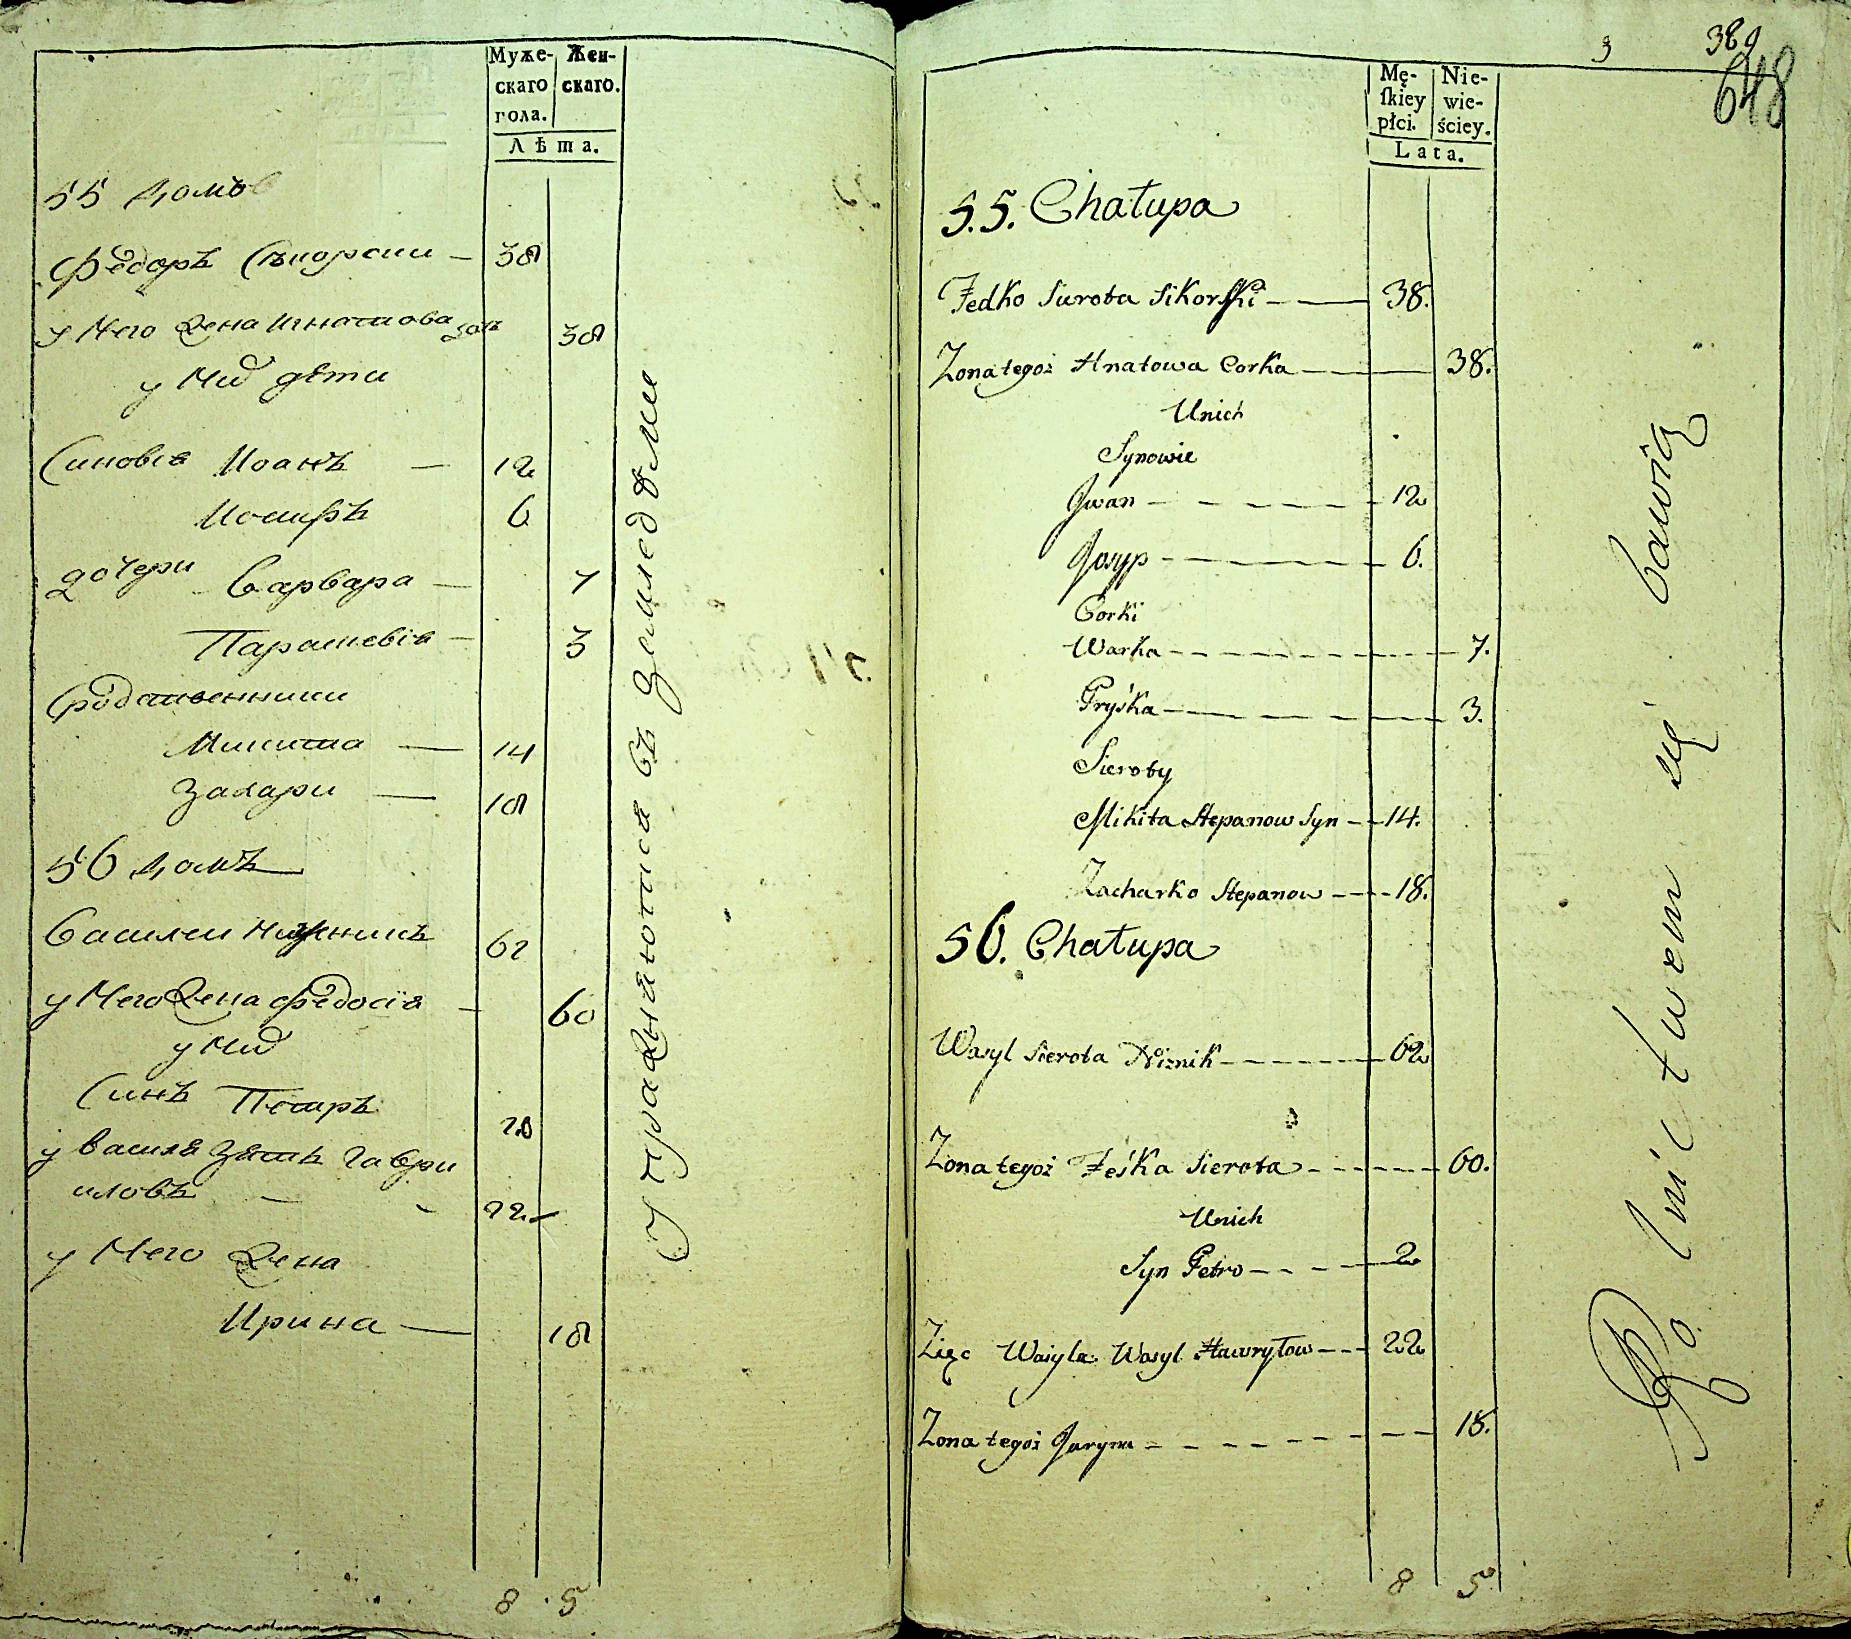 Муже-
скаго
пола.
Жен-
скаго.
Лѣта.
55 домъ
Федоръ Сѣкорски — 38
у него жена Игнатова дочь 38
у них дѣти
Синовья Иоанъ — 12
Иосифъ 6
дочери Варвара — 7
Параскевія — 3
Сродственники
Микита — 14
Захари — 18
56 домъ
Василеи Нижникъ 62
у него жена Федосія — 60
у них
Синъ Петръ 20
у Василя Зять Гаври
иловъ — 22
у него жена
Ирина — 18
8 5
Упражняются въ земледѣлии
3
389
648
Mę-
skiey
płci.
Nie-
wie-
ściey.
Lata.
55. Chałupa
Fedko Sierota Sikorski — 38.
Zona tegoż Hnatowa Corka — 38.
Unich
Synowie
Jwan — 12
Josyp — 6.
Corki
Warka — 7.
Pryśka — 3.
Sieroty
Mikita Stepanow Syn — 14.
Zacharko Stepanow — 18.
56. Chałupa
Wasyl Sierota Niznik — 62
Zona tegoż Feśka Sierota — 60.
Unich
Syn Petro — 2
Zięc Wasyla Wasyl Hawryłow — 22
Zona tegoż Jaryna — 18.
8 5
Rolnictwem się bawią